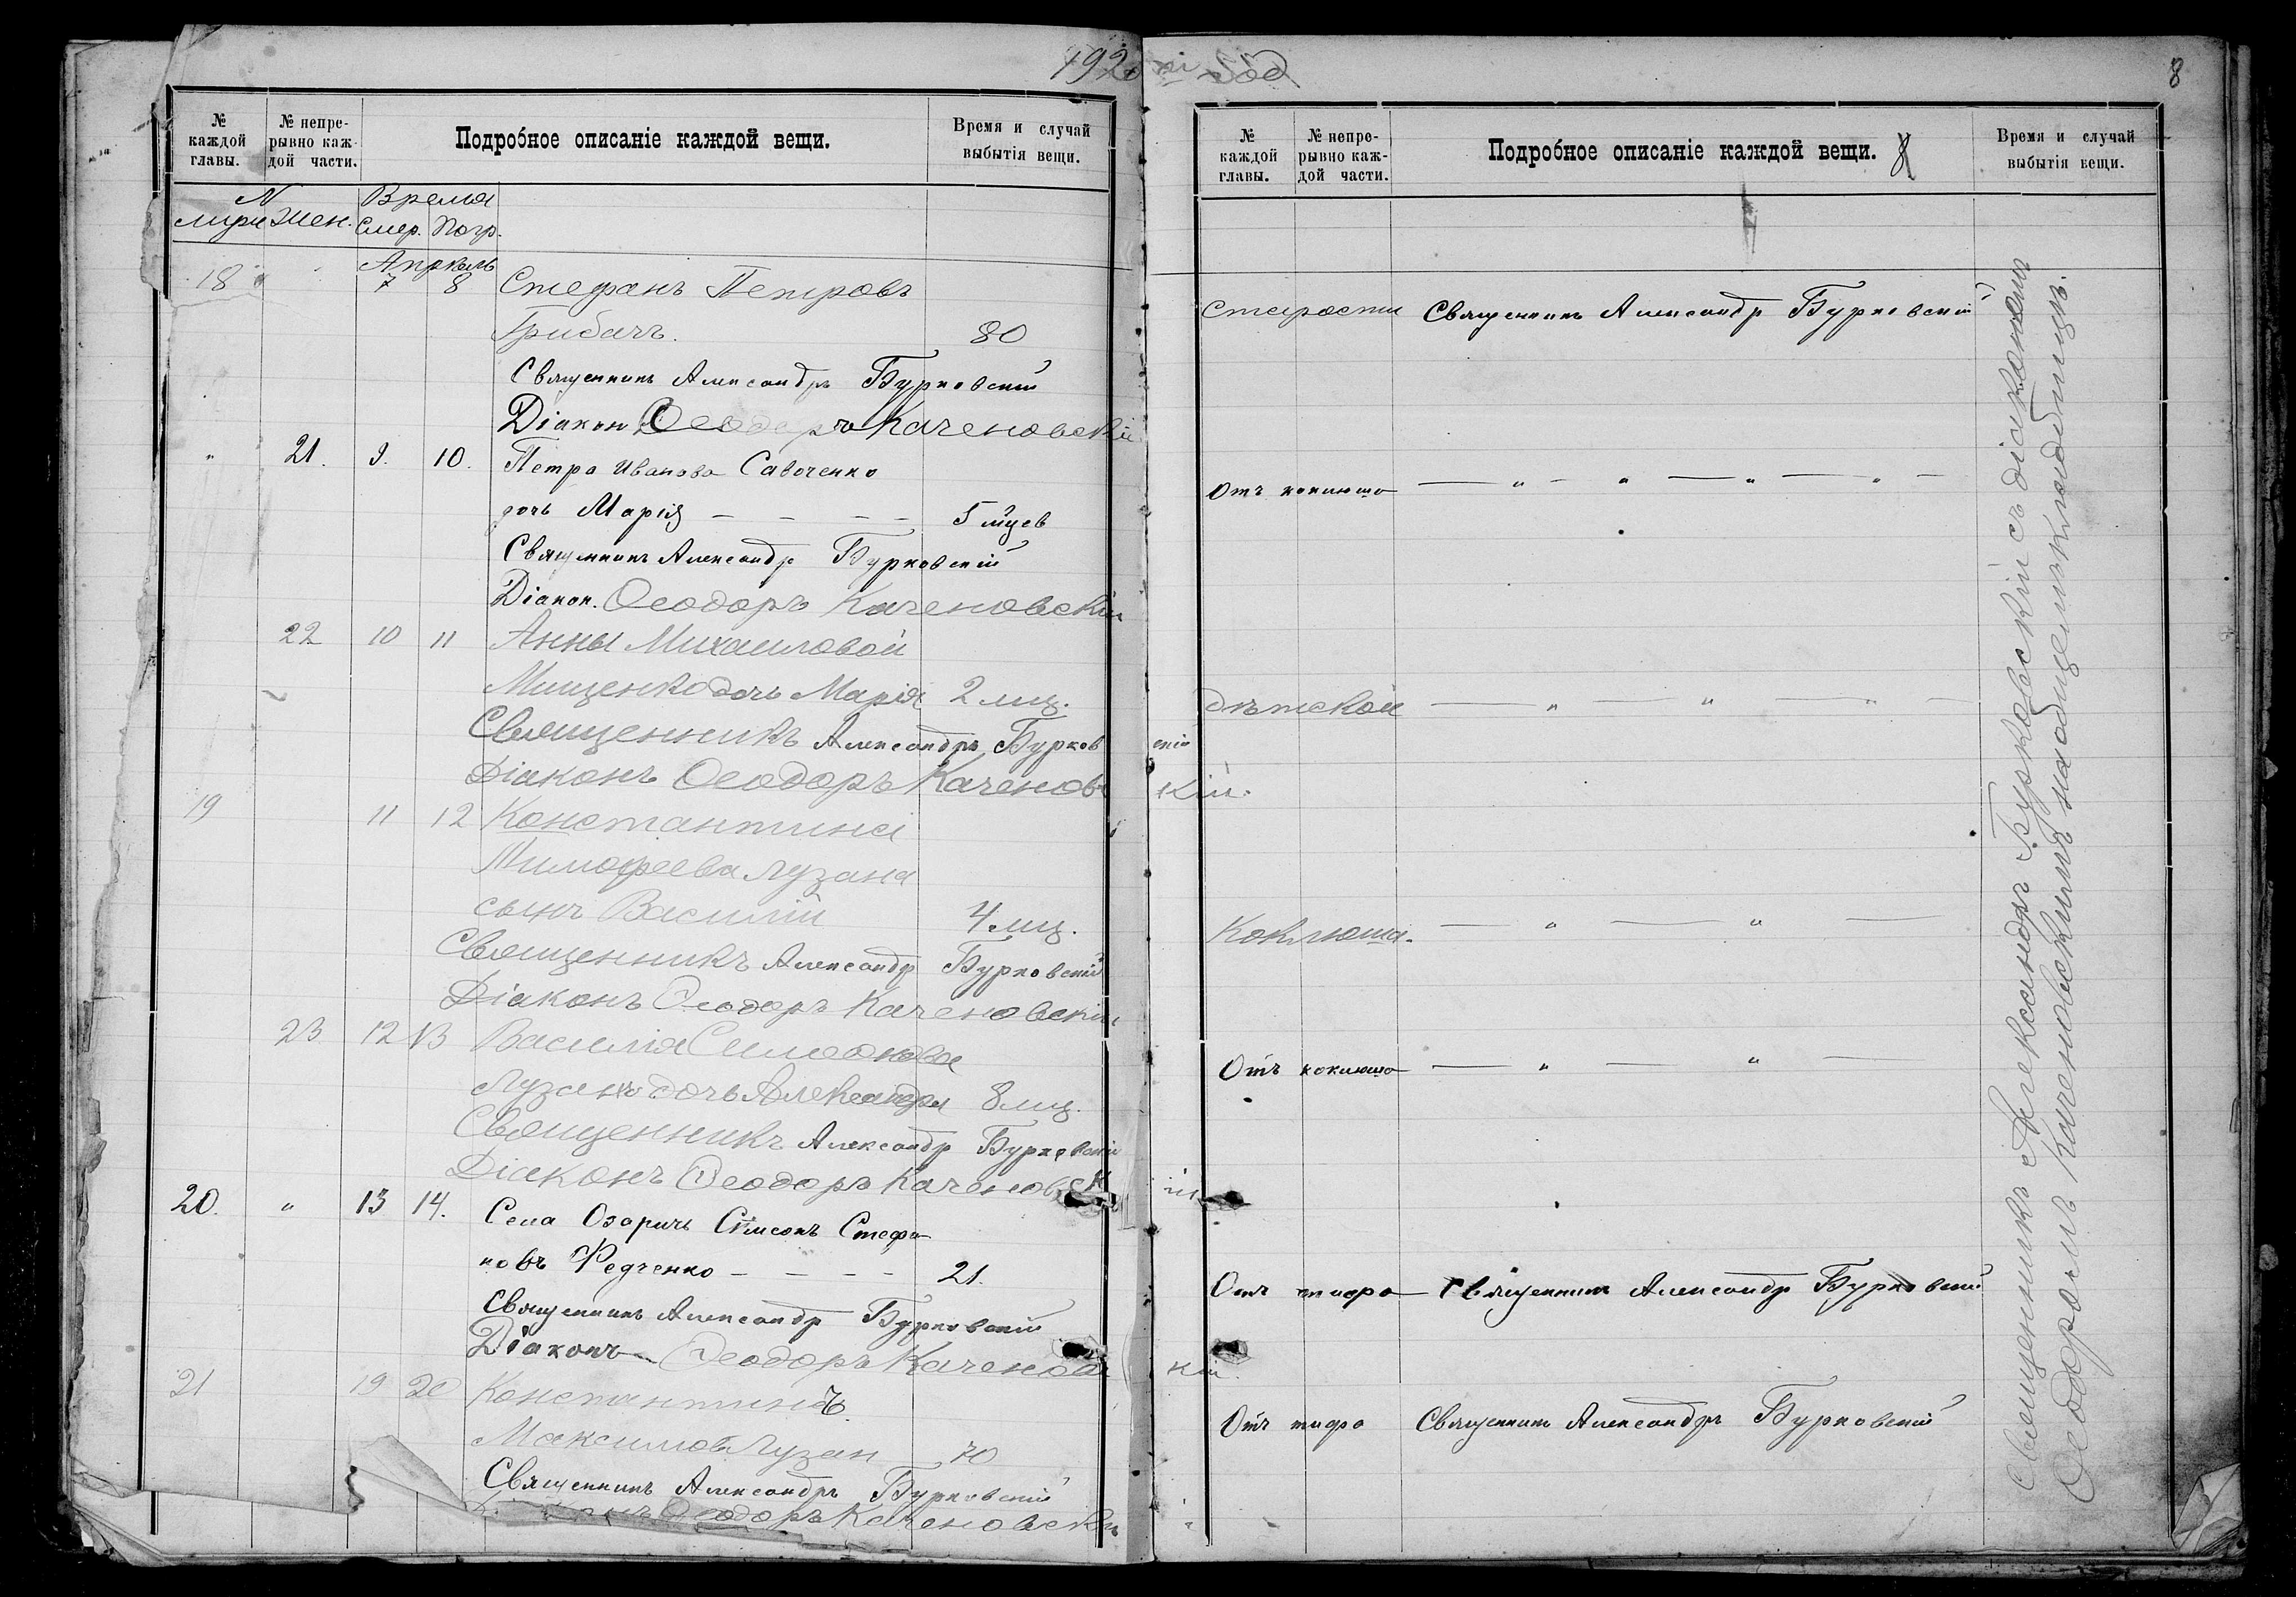 1920 й Год
8
№ каждой главы.
№ непрерывно каждой части.
Подробное описаніе каждой вещи.
Время и случай выбытія вещи.
№ Время
муж жен. Смер. Погр.
Апрѣль
18 7 8 Стефанъ Петровъ
Грибачъ. 80
Священникъ Александръ Бурковскій
Діакон Ѳеодоръ Каченовскій
" 21. 9. 10. Петра Иванова Савоченко
дочь Марія – – – – 5 мцев
Священникъ Александр Бурковскій
Діакон. Ѳеодоръ Каченовскій
22 10 11 Анны Михаиловой
Мищенко дочь Марія 2 мц.
Священникъ Александръ Бурковскій
Діаконъ Ѳеодоръ Каченовскій.
19 11 12 Константина
Тимофеева Лузана
сынъ Василій 4 мц.
Священникъ Александр Бурковскій
Діаконъ Ѳеодоръ Каченовскій
23 12 13 Василія Симеонова
Лузанъ дочь Александра 8 мц.
Священникъ Александр Бурковскій
Діаконъ Ѳеодоръ Каченовскій
20. " 13 14. Села Озаричъ Сімеонъ Стефа-
новъ Федченко – – – – 21.
Священникъ Александр Бурковскій
Діаконъ Ѳеодоръ Каченовскій.
21 19 20 Константинъ
Максимовъ Лузан 70
Священникъ Александръ Бурковскій
Діаконъ Ѳеодоръ Каченовскій
№ каждой главы.
№ непрерывно каждой части.
Подробное описаніе каждой вещи. 8
Время и случай выбытія вещи.
Старости Священникъ Александр Бурковскій
Отъ коклюша — " — " — " — " —
дѣтской — " — " — " —
Коклюша. — " — " —
Отъ коклюша — " — " —
Отъ тифа — Священникъ Александр Бурковскій
Отъ тифа Священникъ Александръ Бурковскій
Священникъ Александръ Бурковскій съ діакономъ
Ѳеодоромъ Каченовскимъ на общемъ кладбищѣ.